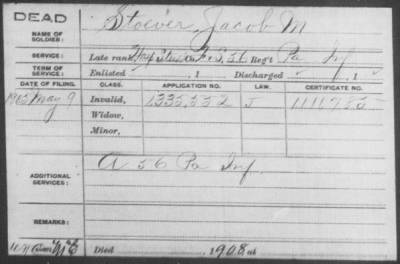 DEAD
NAME OF SOLDIER: Stoever, Jacob M
SERVICE: Late rank, F & S, 56 Reg't Pa Inf
TERM OF SERVICE: Enlisted , 1 Discharged , 1
DATE OF FILING. CLASS. APPLICATION NO. LAW. CERTIFICATE NO.
1905 May 9 Invalid, 1335,552 J 1111785
Widow,
Minor,
ADDITIONAL SERVICES: A 56 Pa Inf
REMARKS:
Died 1908 at